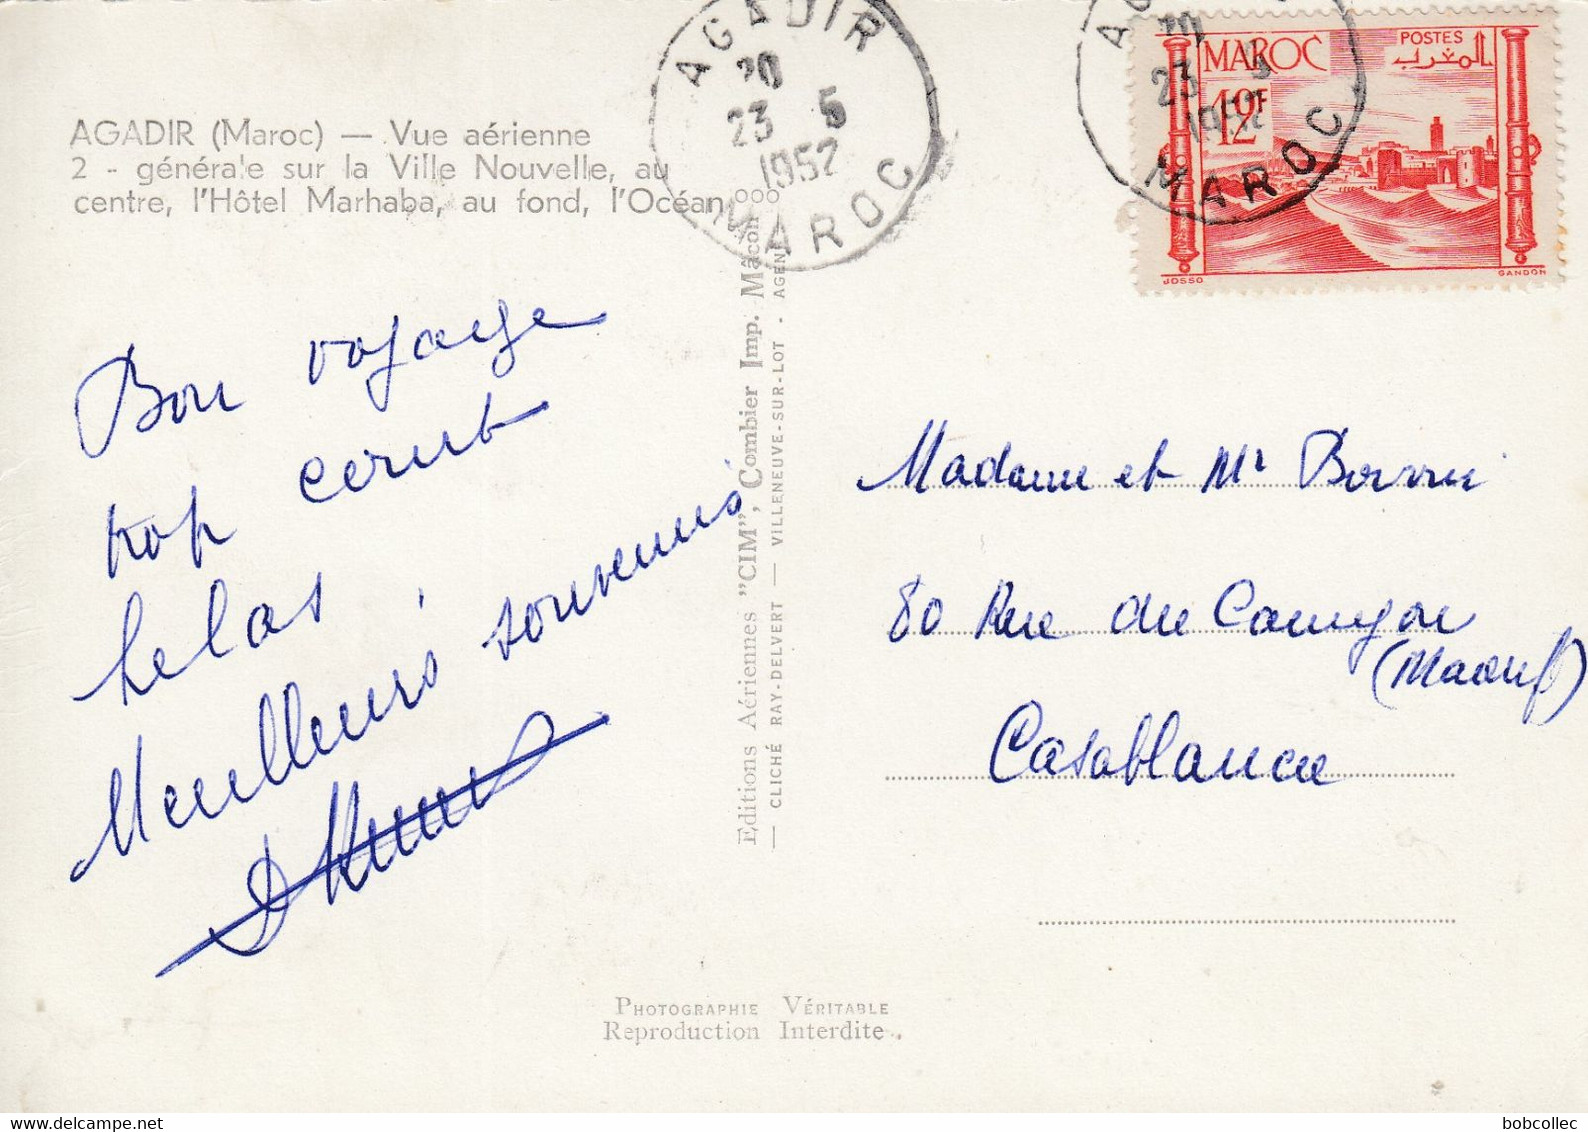 AGADIR
20
23 5
1952
MAROC
20
23 5
1952
MAROC
MAROC
POSTES
المغرب
12F
JOSSO
GANDON
AGADIR (Maroc) — Vue aérienne
2 - générale sur la Ville Nouvelle, au
centre, l'Hôtel Marhaba, au fond, l'Océan °°°
Bon voyage
trop court
helas
Meilleurs souvenirs
Editions Aériennes "CIM", Combier Imp. Mâcon
— CLICHÉ RAY-DELVERT — VILLENEUVE-SUR-LOT - AGEN
Madame et Mr
80 Rue du
(Maarif)
Casablanca
PHOTOGRAPHIE VÉRITABLE
Reproduction Interdite
bobcollec